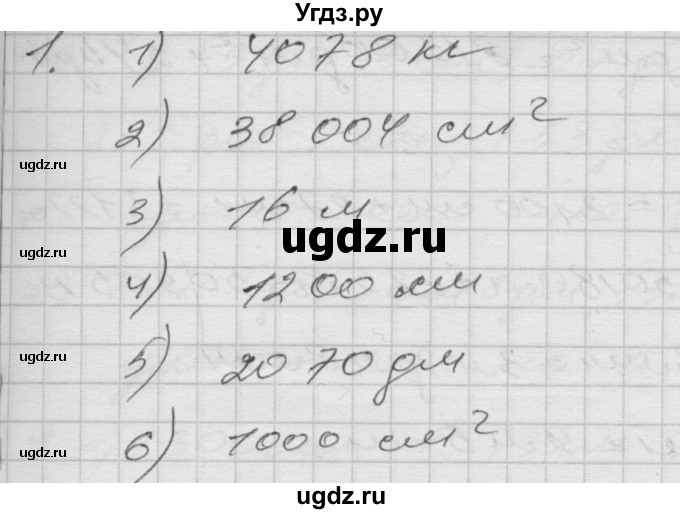 Угдз.ру
1. 1) 4078 кг
2) 38 004 см²
ugdz.ru
3) 16 м
ugdz.ru
ugdz.ru
4) 1200 см
ugdz.ru
5) 2070 дм
6) 1000 см²
ugdz.ru
ugdz.ru